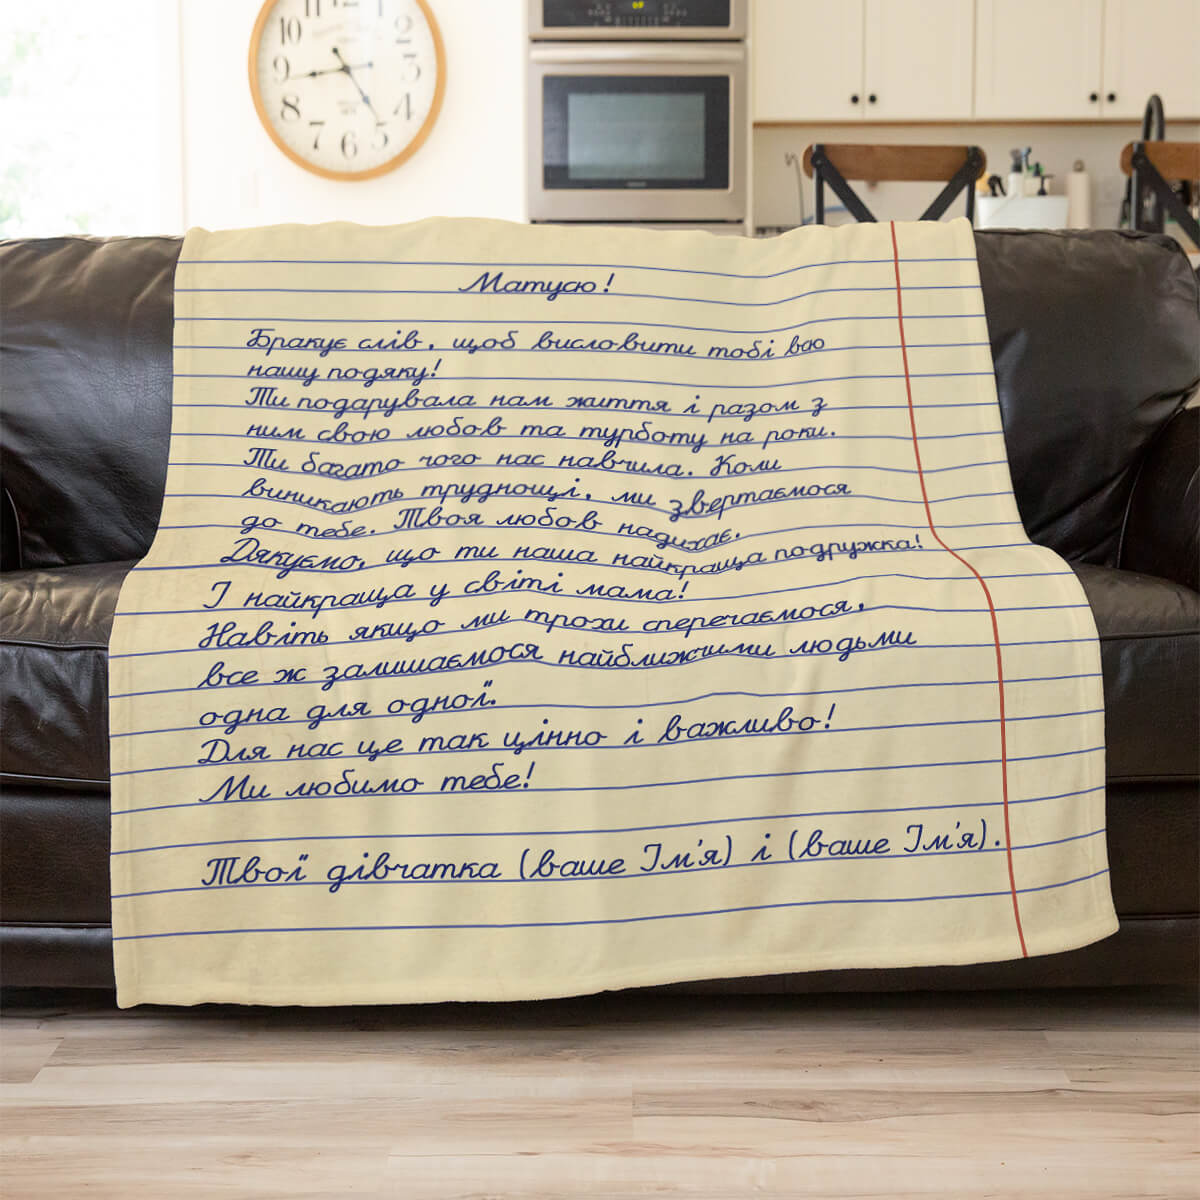 10 11 12 1 2
9 3
8 4
7 6 5
Матусю!
Бракує слів, щоб висловити тобі всю
нашу подяку!
Ти подарувала нам життя і разом з
ним свою любов та турботу на роки.
Ти багато чого нас навчила. Коли
виникають труднощі, ми звертаємося
до тебе. Твоя любов надихає.
Дякуємо, що ти наша найкраща подружка!
І найкраща у світі мама!
Навіть якщо ми трохи сперечаємося,
все ж залишаємося найближчими людьми
одна для одної.
Для нас це так цінно і важливо!
Ми любимо тебе!
Твої дівчатка (ваше Ім'я) і (ваше Ім'я).